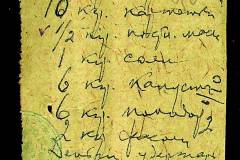 10 кг. картошки
1/2 кг. подс. масл
1 кг. соли
6 кг. капусты
6 кг. помидор
2 кг фасоли